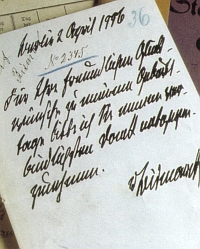 Berlin 2 April 1886
36
Für Ihre freundlichen Glück-
wünsche zu meinem Geburts-
tage bitte ich Sie meinen ver-
bindlichsten Dank entgegen-
zunehmen.
v Bismarck